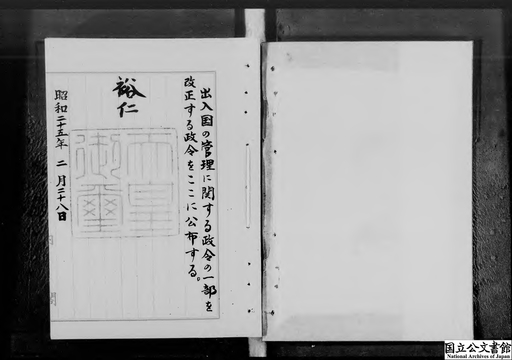 出入国の管理に関する政令の一部を
改正する政令をここに公布する。
裕仁
天皇
御璽
昭和二十五年 二月二十八日
国立公文書館
National Archives of Japan